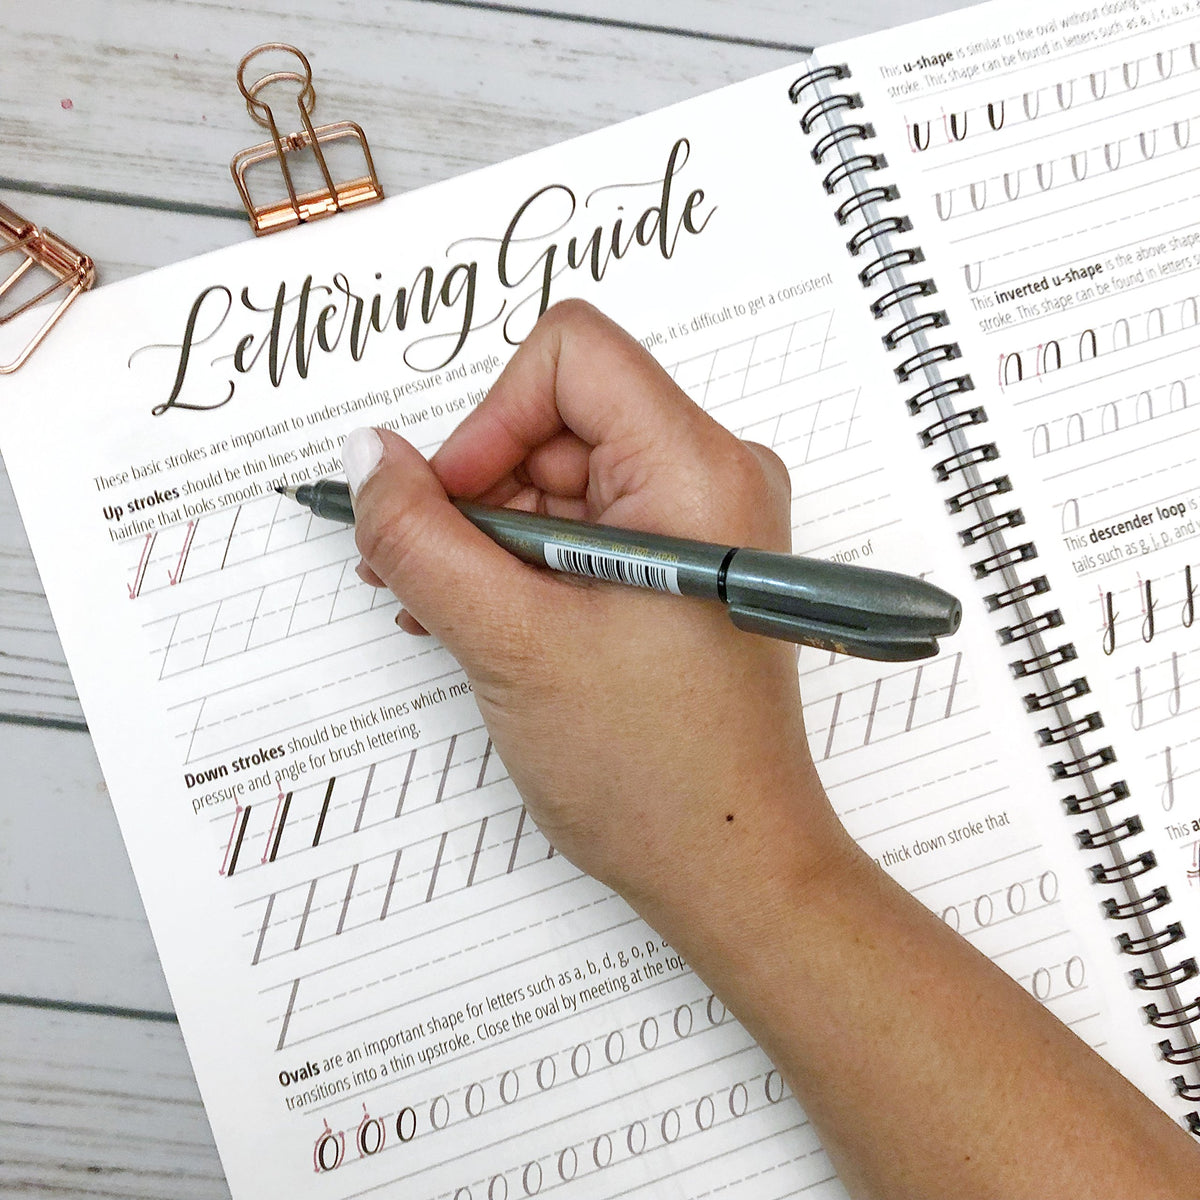 Lettering Guide
These basic strokes are important to understanding pressure and angle. ople, it is difficult to get a consistent
Up strokes should be thin lines which m you have to use ligh
hairline that looks smooth and not shaky
ation of
Down strokes should be thick lines which mea
pressure and angle for brush lettering.
thick down stroke that
Ovals are an important shape for letters such as a, b, d, g, o, p, a
transitions into a thin upstroke. Close the oval by meeting at the top
This u-shape is similar to the oval without closing
stroke. This shape can be found in letters such as a, i, r, u, v,
This inverted u-shape is the above shape
stroke. This shape can be found in letters s
This descender loop is
tails such as g, j, p, and
This a